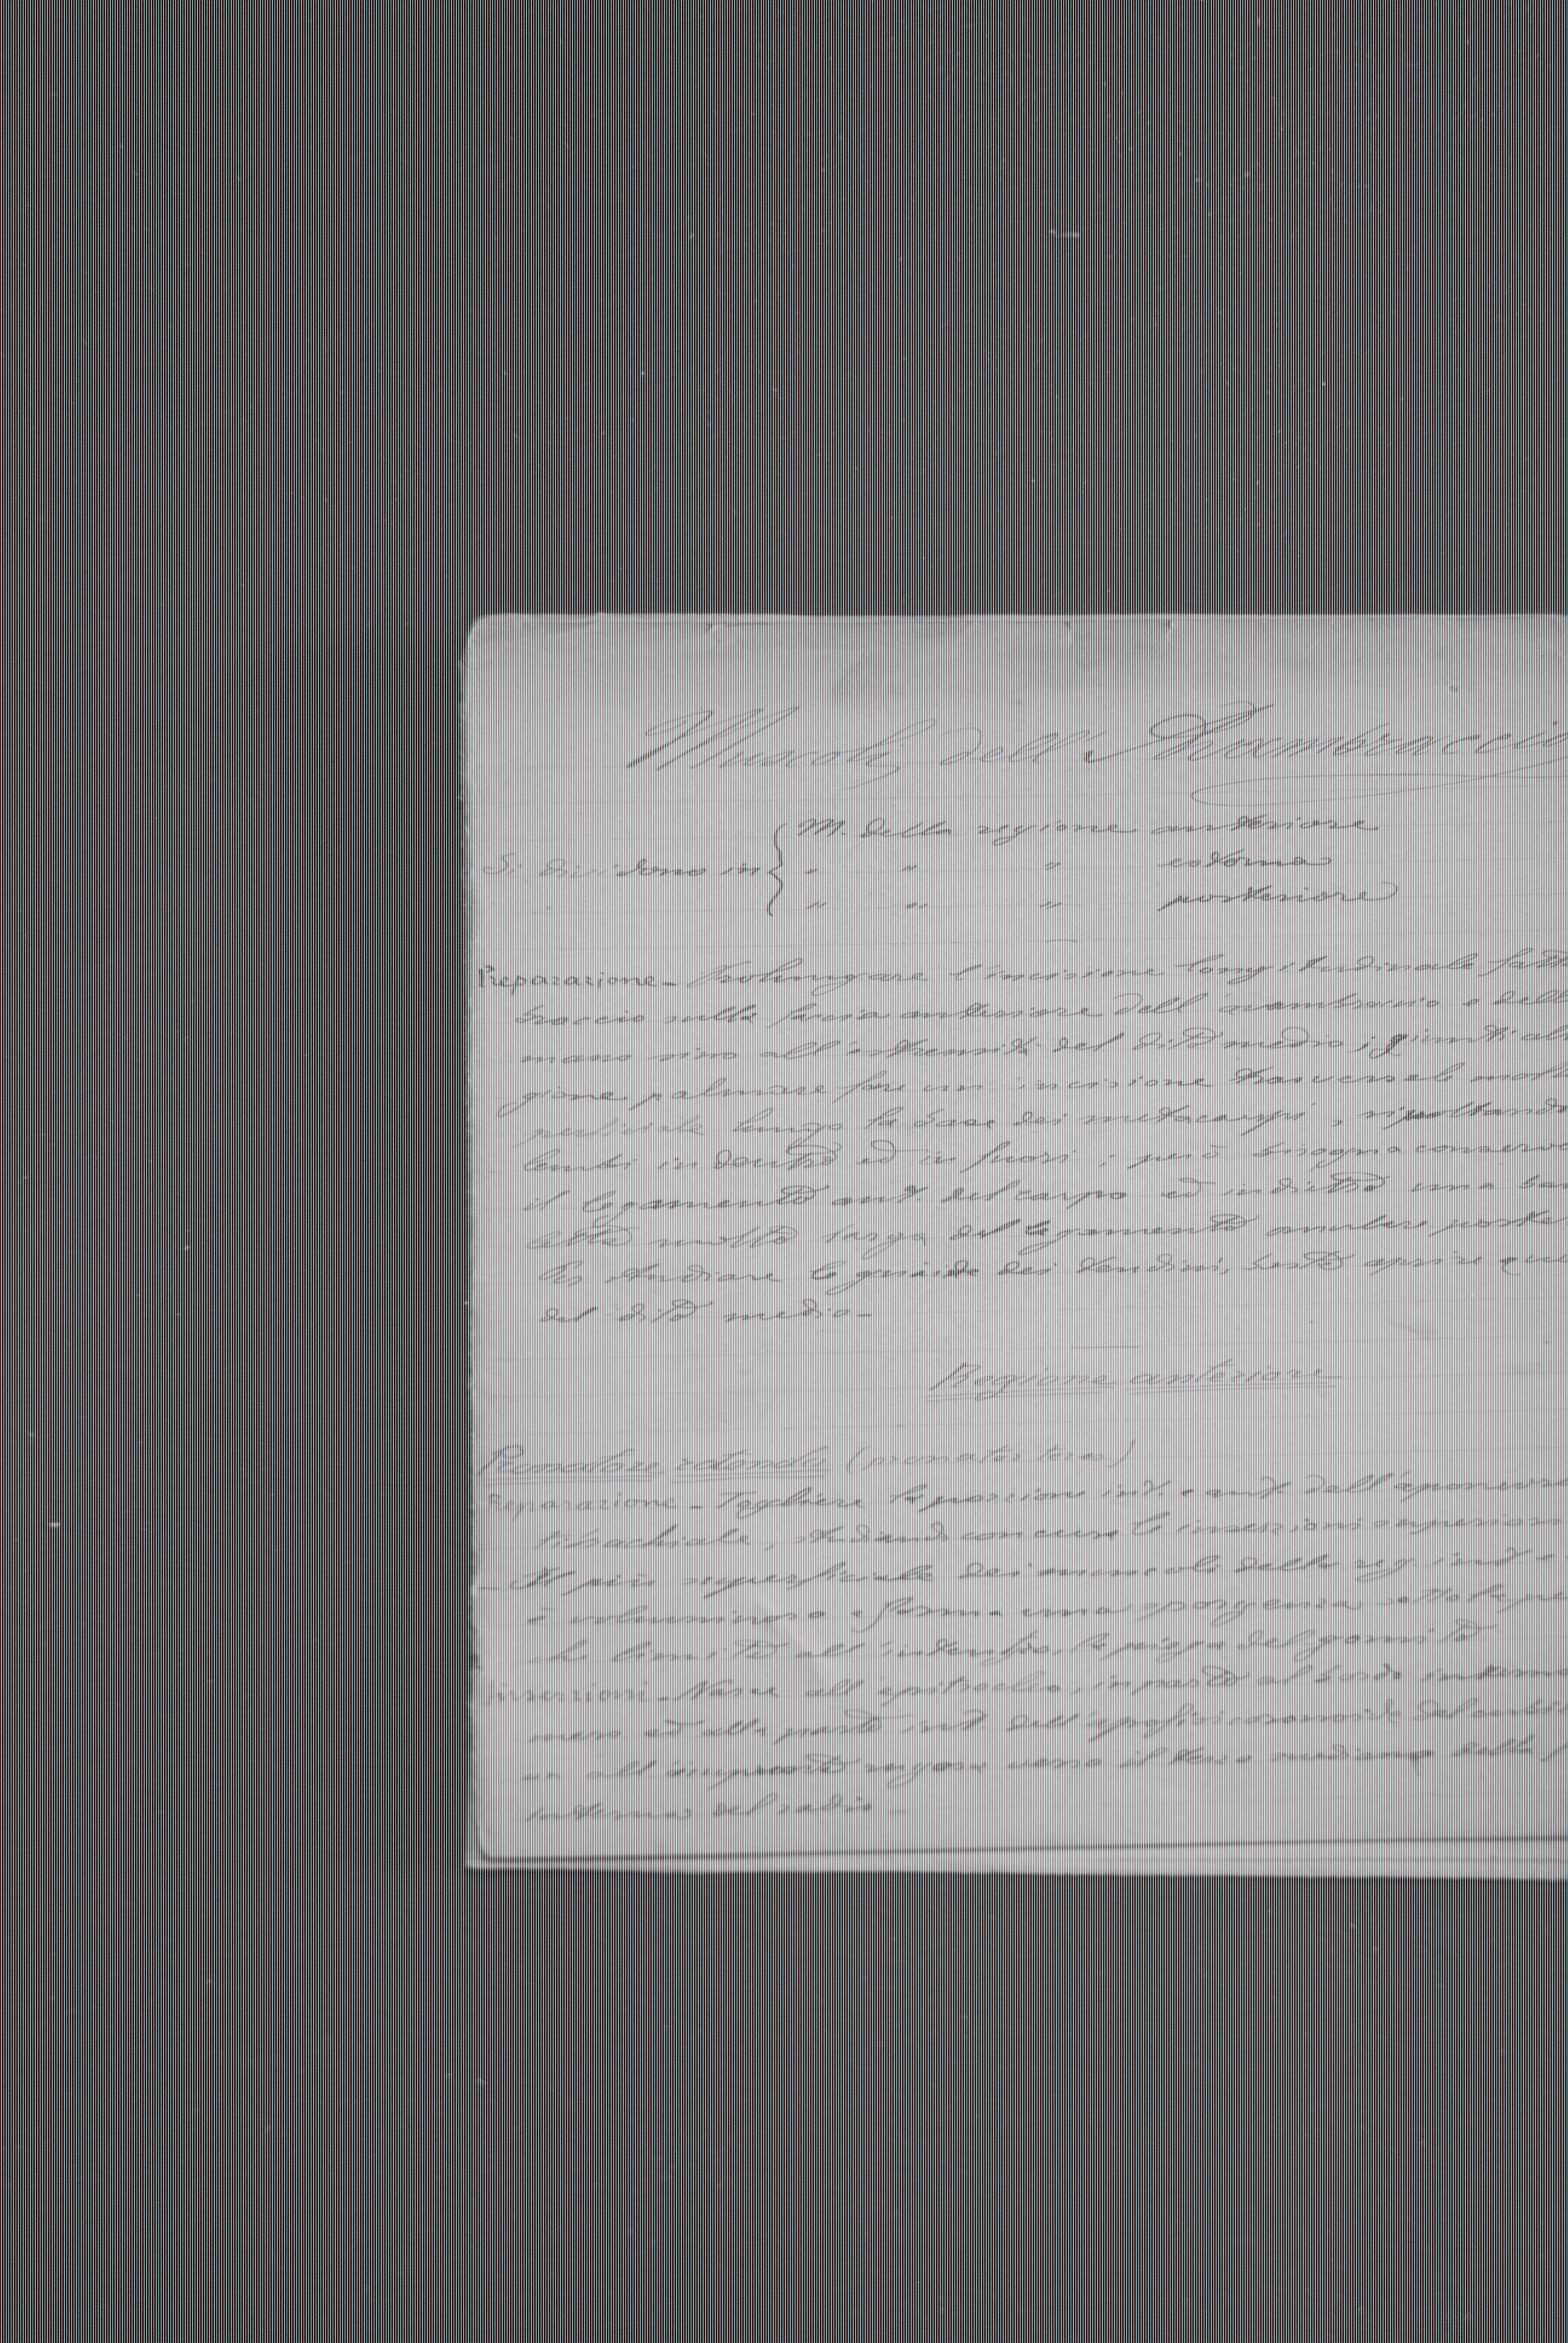 Muscoli dell'Avambraccio
M. della regione anteriore
Si dividono in { " " " esterna
" " " posteriore
Preparazione - Prolungare l'incisione longitudinale fatt
braccio sulla faccia anteriore dell'avambraccio e dell
mano sino all'estremità del dito medio; giunti al
gione palmare fare un incisione trasversale molt
perficiale lungo la base dei metacarpi, ripoltando
lembi in dentro ed in fuori; però bisogna conserva
il legamento ant. del carpo ed indietro una ban
letta molto larga del legamento anulare poste
Per studiare le guaine dei tendini, basta aprire que
del dito medio -
Regione anteriore
Pronatore rotondo (pronator teres)
Preparazione - Togliere la porzione int. e ant. dell'aponevro
tibrachiale, studiando con cura le inserzioni superiori
- Il più superficiale dei muscoli della reg. int. e
è voluminoso e forma una sporgenza sotto la pe
che limita all'interno la piega del gomito
Inserzioni - Nasce all'epitroclea, in parte al bordo interno
mero ed alla parte int. dell'apofisi coronoide del cubi
in all'impronta rugosa verso il terzo mediano della f
interna del radio -